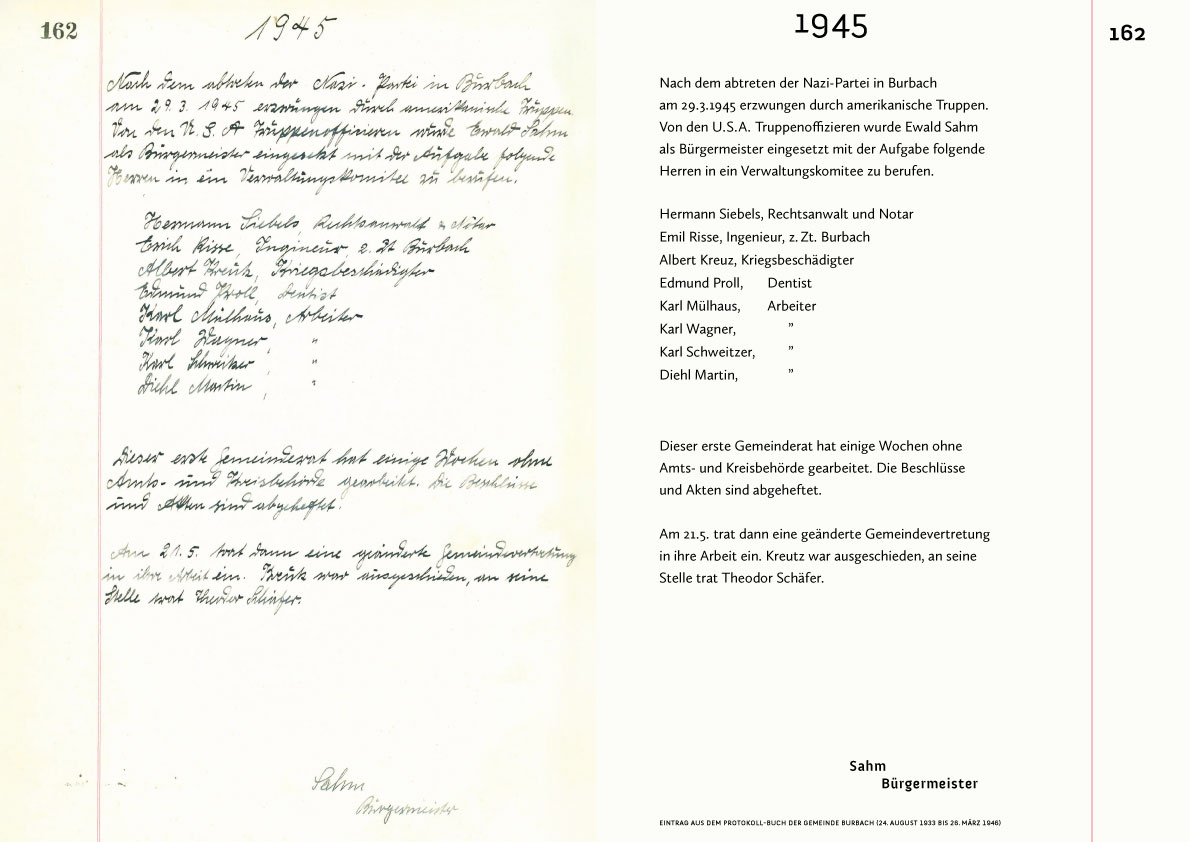 162
1945
Nach dem abtreten der Nazi-Partei in Burbach
am 29.3.1945 erzwungen durch amerikanische Truppen
Von den U.S.A Truppenoffizieren wurde Ewald Sahm
als Bürgermeister eingesetzt mit der Aufgabe folgende
Herren in ein Verwaltungskomitee zu berufen.
Hermann Siebels, Rechtsanwalt u Notar
Risse, Ingineur z. Zt Burbach
Albert Kreutz, Kriegsbeschädigter
Edmund Proll, Dentist
Karl Mülhaus, Arbeiter
Karl Wagner, "
Karl Schweitzer, "
Diehl Martin, "
Dieser erste Gemeinderat hat einige Wochen ohne
Amts- und Kreisbehörde gearbeitet. Die Beschlüsse
und Akten sind abgeheftet.
Am 21.5. trat dann eine geänderte Gemeindevertretung
in ihre Arbeit ein. Kreutz war ausgeschieden, an seine
Stelle trat Theodor Schäfer.
Sahm
Bürgermeister
1945
162
Nach dem abtreten der Nazi-Partei in Burbach
am 29.3.1945 erzwungen durch amerikanische Truppen.
Von den U.S.A. Truppenoffizieren wurde Ewald Sahm
als Bürgermeister eingesetzt mit der Aufgabe folgende
Herren in ein Verwaltungskomitee zu berufen.
Hermann Siebels, Rechtsanwalt und Notar
Emil Risse, Ingenieur, z. Zt. Burbach
Albert Kreuz, Kriegsbeschädigter
Edmund Proll, Dentist
Karl Mülhaus, Arbeiter
Karl Wagner, ”
Karl Schweitzer, ”
Diehl Martin, ”
Dieser erste Gemeinderat hat einige Wochen ohne
Amts- und Kreisbehörde gearbeitet. Die Beschlüsse
und Akten sind abgeheftet.
Am 21.5. trat dann eine geänderte Gemeindevertretung
in ihre Arbeit ein. Kreutz war ausgeschieden, an seine
Stelle trat Theodor Schäfer.
Sahm
Bürgermeister
EINTRAG AUS DEM PROTOKOLL-BUCH DER GEMEINDE BURBACH (24. AUGUST 1933 BIS 26. MÄRZ 1946)